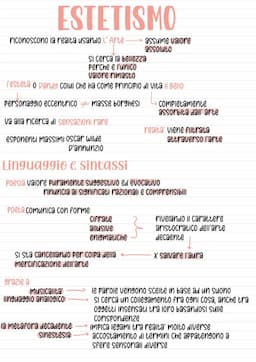 ESTETISMO
riconoscono la realtà usando L'Arte → assume valore assoluto
si cerca la bellezza
perché è l'unico
valore rimasto
l'esteta o Dandy colui che ha come principio di vita il Bello
personaggio eccentrico ≠ masse borghesi
completamente
assorbita dall'arte
va alla ricerca di sensazioni rare
realtà viene filtrata
attraverso l'arte
esponenti massimi Oscar Wilde
D'annunzio
Linguaggio e sintassi
poesia valore puramente suggestivo ed evocativo
rinuncia ai significati razionali e comprensibili
poeta comunica con forme
cifrate
allusive
enigmatiche
rivelando il carattere
aristocratico dell'arte
decadente
si sta cancellando per colpa della
mercificazione dell'arte
x salvare l'aura
grazie a
musicalità → le parole vengono scelte in base al un suono
linguaggio analogico → si cerca un collegamento fra ogni cosa, anche tra
oggetti insensati tra loro basandosi sulle
corrispondenze
la metafora decadente → implica legami tra realtà molto diverse
sinestesia → accostamento di termini che appartengono a
sfere sensoriali diverse